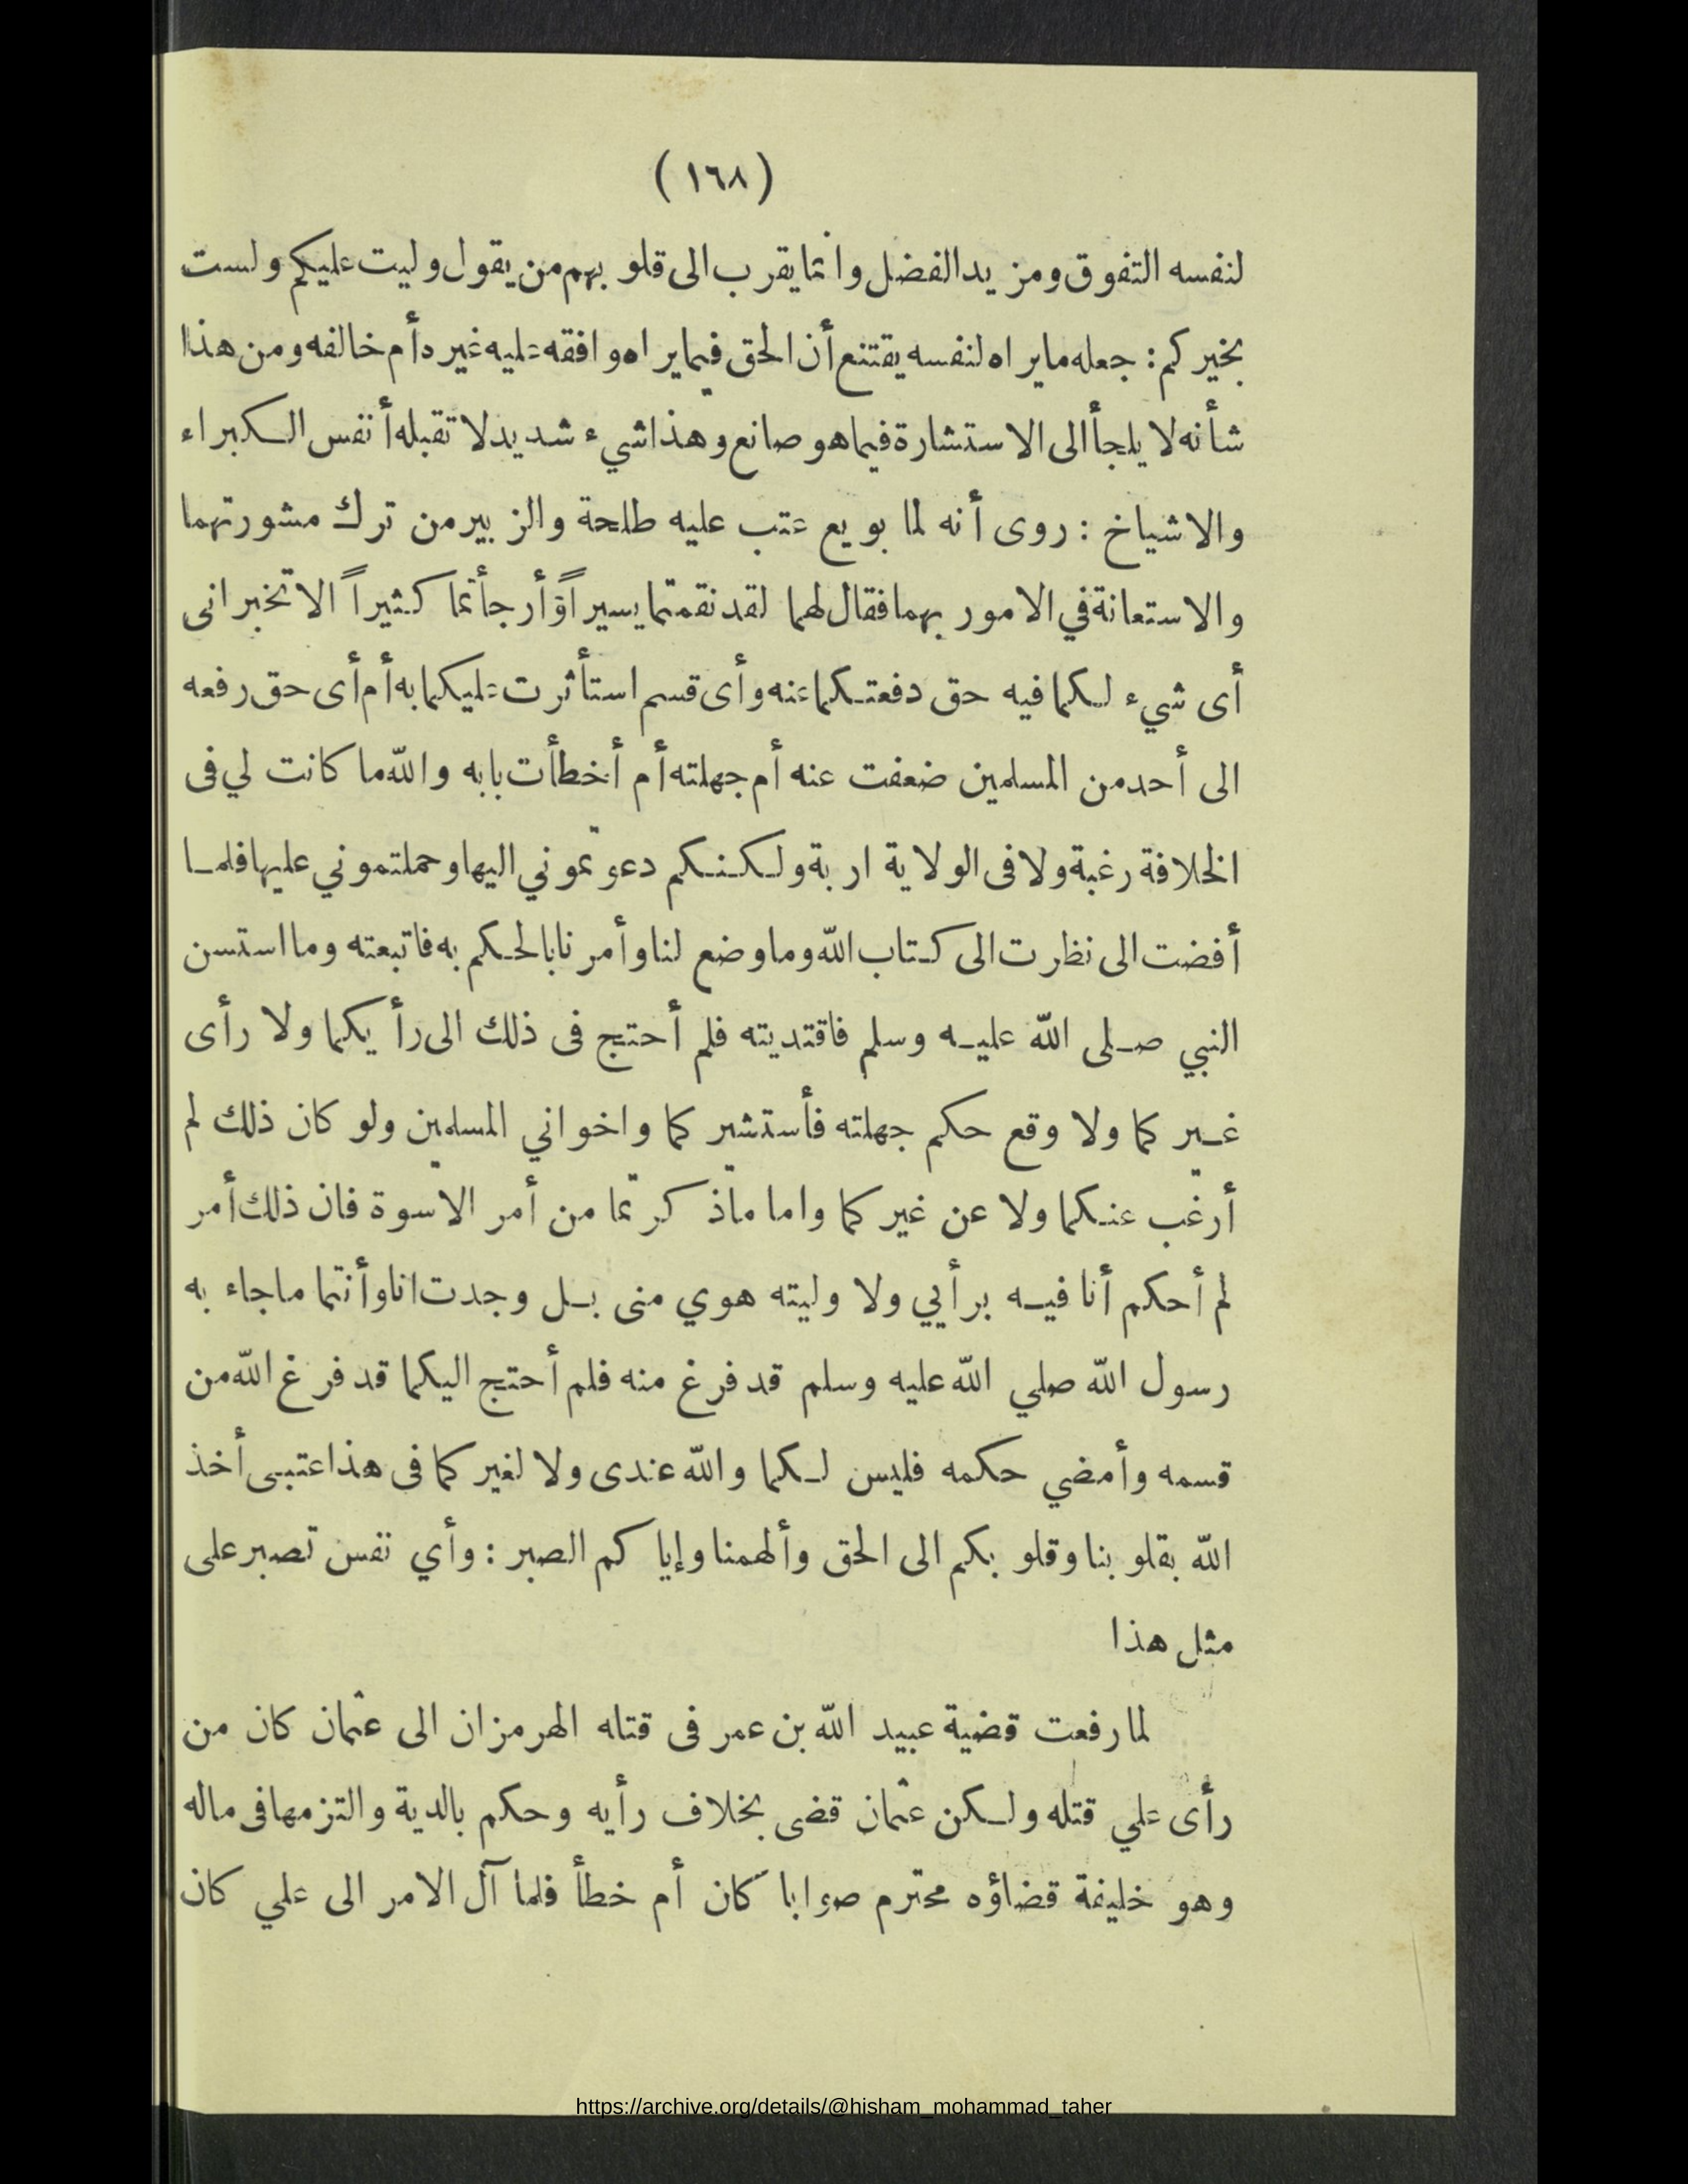 ( ١٦٨ )
لنفسه التفوق ومزيد الفضل وانما يقرب الى قلوبهم من يقول وليت عليكم ولست
بخيركم : جعله ما يراه لنفسه يقتنع أن الحق فيما يراه وافقه عليه غيره أم خالفه ومن هذا
شأنه لا يلجأ الى الاستشارة فيما هو صانع وهذا شيء شديد لا تقبله أنفس الكبراء
والاشياخ : روى أنه لما بويع عتب عليه طلحة والزبير من ترك مشورتهما
والاستعانة في الامور بهما فقال لهما لقد نقمتما يسيراً وأرجأتما كثيراً الا تخبرانى
أى شيء لكما فيه حق دفعتكما عنه وأى قسم استأثرت عليكما به أم أى حق رفعه
الى أحد من المسلمين ضعفت عنه أم جهلته أم أخطأت بابه والله ما كانت لي فى
الخلافة رغبة ولا فى الولاية اربة ولكنكم دعوتموني اليها وحملتموني عليها فلما
أفضت الى نظرت الى كتاب الله وما وضع لنا وأمرنا بالحكم به فاتبعته وما استسن
النبي صلى الله عليه وسلم فاقتديته فلم أحتج فى ذلك الى رأيكما ولا رأى
غيركما ولا وقع حكم جهلته فأستشيركما واخواني المسلمين ولو كان ذلك لم
أرغب عنكما ولا عن غيركما واما ما ذكرتما من أمر الاسوة فان ذلك أمر
لم أحكم أنا فيه برأيي ولا وليته هوي منى بل وجدت انا وأنتما ما جاء به
رسول الله صلي الله عليه وسلم قد فرغ منه فلم أحتج اليكما قد فرغ الله من
قسمه وأمضي حكمه فليس لكما والله عندى ولا لغيركما فى هذا عتبى أخذ
الله بقلوبنا وقلوبكم الى الحق وألهمنا وإياكم الصبر : وأي نفس تصبر على
مثل هذا
لما رفعت قضية عبيد الله بن عمر فى قتله الهرمزان الى عثمان كان من
رأى علي قتله ولكن عثمان قضى بخلاف رأيه وحكم بالدية والتزمها فى ماله
وهو خليفة قضاؤه محترم صوابا كان أم خطأ فلما آل الامر الى علي كان
https://archive.org/details/@hisham_mohammad_taher